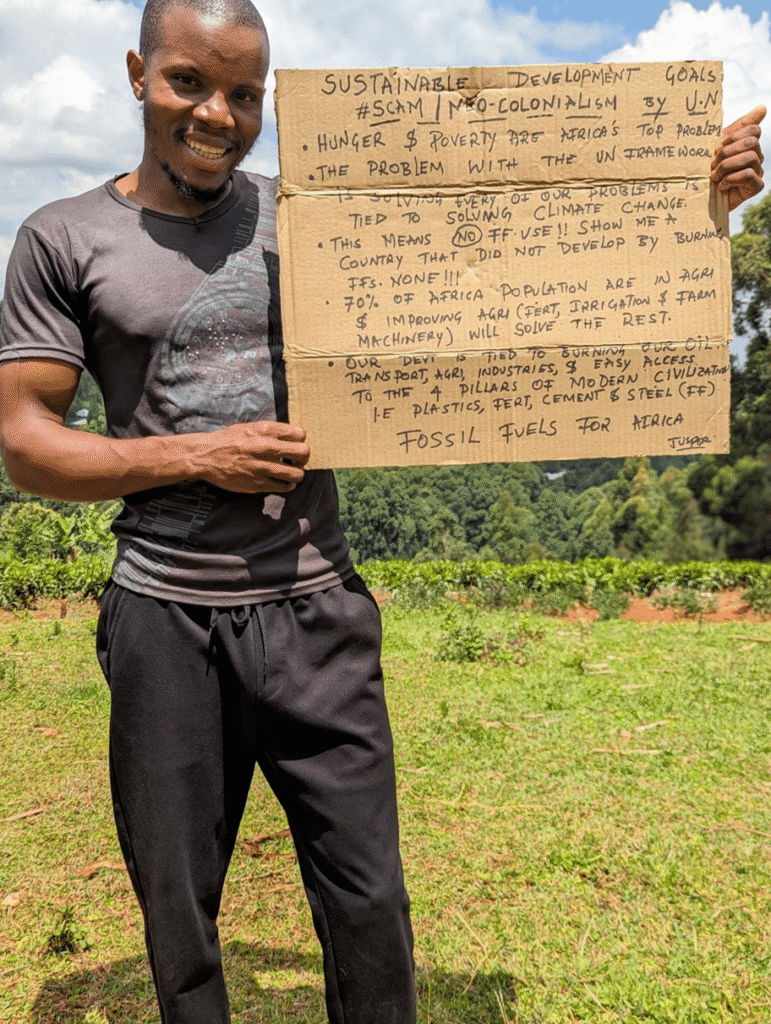 SUSTAINABLE DEVELOPMENT GOALS
#SCAM / NEO-COLONIALISM BY U.N
• HUNGER & POVERTY ARE AFRICA'S TOP PROBLEM
• THE PROBLEM WITH THE UN FRAMEWORK
IS SOLVING EVERY OF OUR PROBLEMS IS
TIED TO SOLVING CLIMATE CHANGE.
• THIS MEANS NO FF. USE!! SHOW ME A
COUNTRY THAT DID NOT DEVELOP BY BURNING
FFs. NONE!!!
• 70% OF AFRICA POPULATION ARE IN AGRI
& IMPROVING AGRI (FERT, IRRIGATION & FARM
MACHINERY) WILL SOLVE THE REST.
• OUR DEVT IS TIED TO BURNING OUR OIL.
TRANSPORT, AGRI, INDUSTRIES, & EASY ACCESS
TO THE 4 PILLARS OF MODERN CIVILIZATION
I.E PLASTICS, FERT, CEMENT & STEEL (FF)
FOSSIL FUELS FOR AFRICA
JUSPER